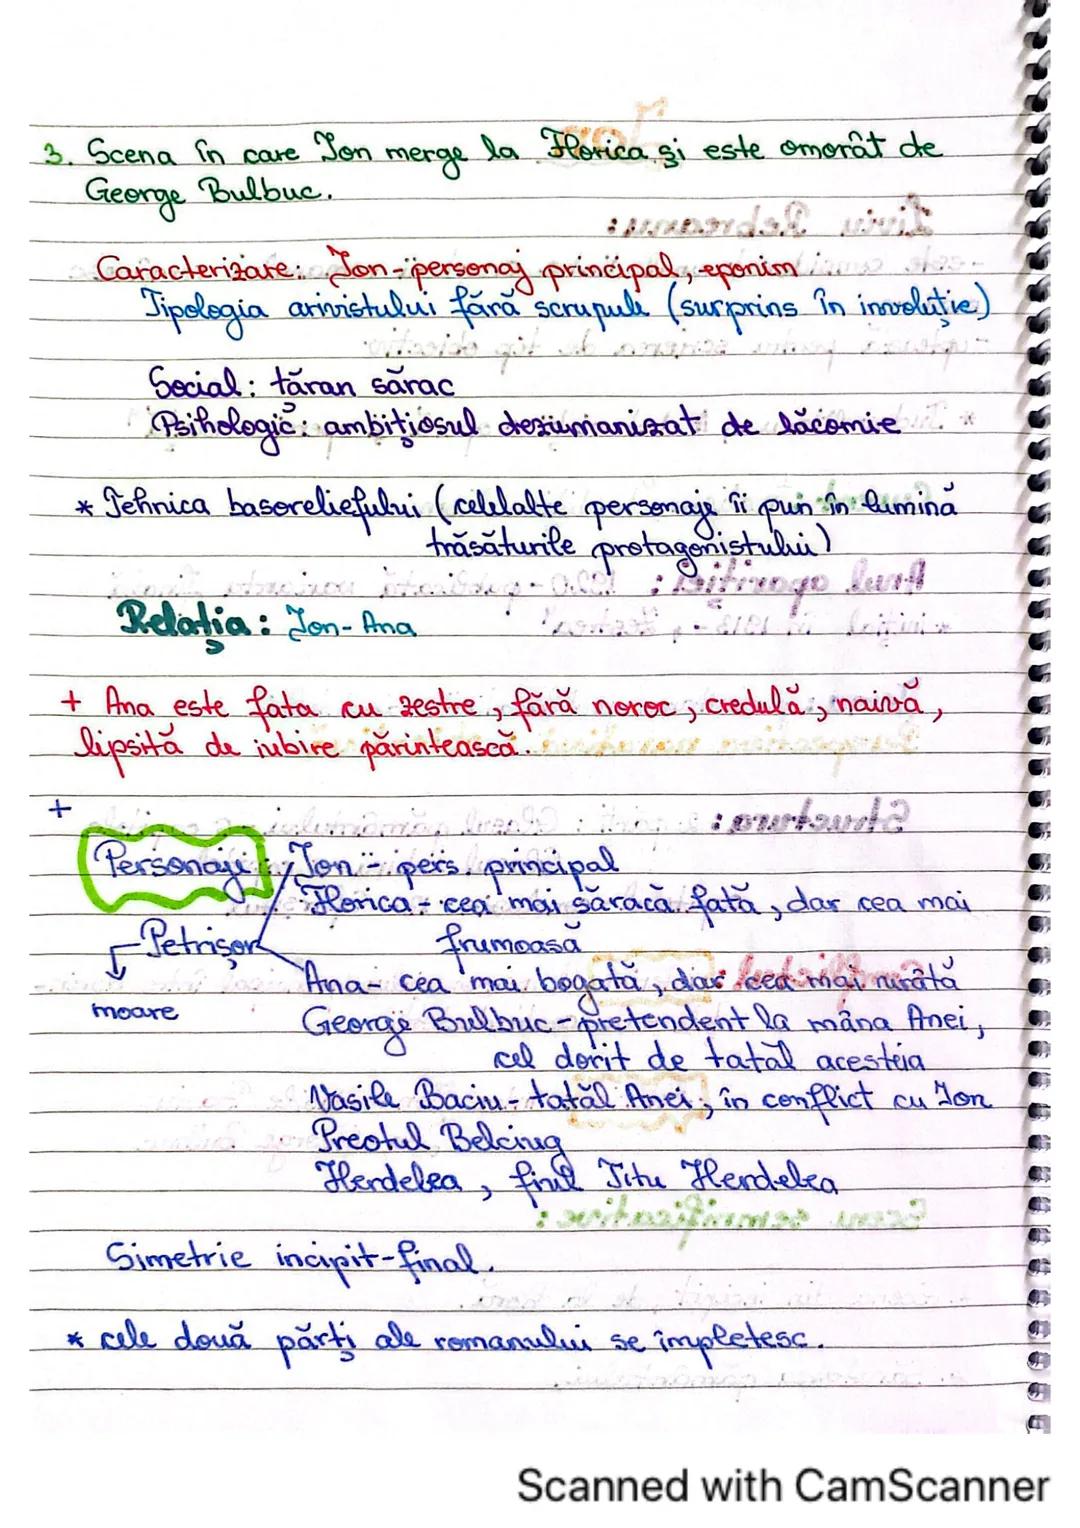 3. Scena în care Ion merge la Florica și este omorât de
George Bulbuc.
Caracterizare: Ion - personaj principal, eponim
Tipologia arivistului fără scrupule (surprins în involuție)
Social: țăran sărac
Psihologic: ambițiosul dezumanizat de lăcomie
* Tehnica basoreliefului (celelalte personaje îi pun în lumină
trăsăturile protagonistului)
Relația: Ion - Ana
+ Ana este fata cu zestre, fără noroc, credulă, naivă,
lipsită de iubire părintească.
+
Personaji: Ion - pers. principal
Florica - cea mai săracă fată, dar cea mai
frumoasă
Petrișor
moare
Ana - cea mai bogată, dar cea mai urâtă
George Bulbuc - pretendent la mâna Anei,
cel dorit de tatăl acesteia
Vasile Baciu - tatăl Anei, în conflict cu Ion
Preotul Belciug
Herdelea, fiul Titu Herdelea
Simetrie incipit-final.
* cele două părți ale romanului se împletesc.
Scanned with CamScanner